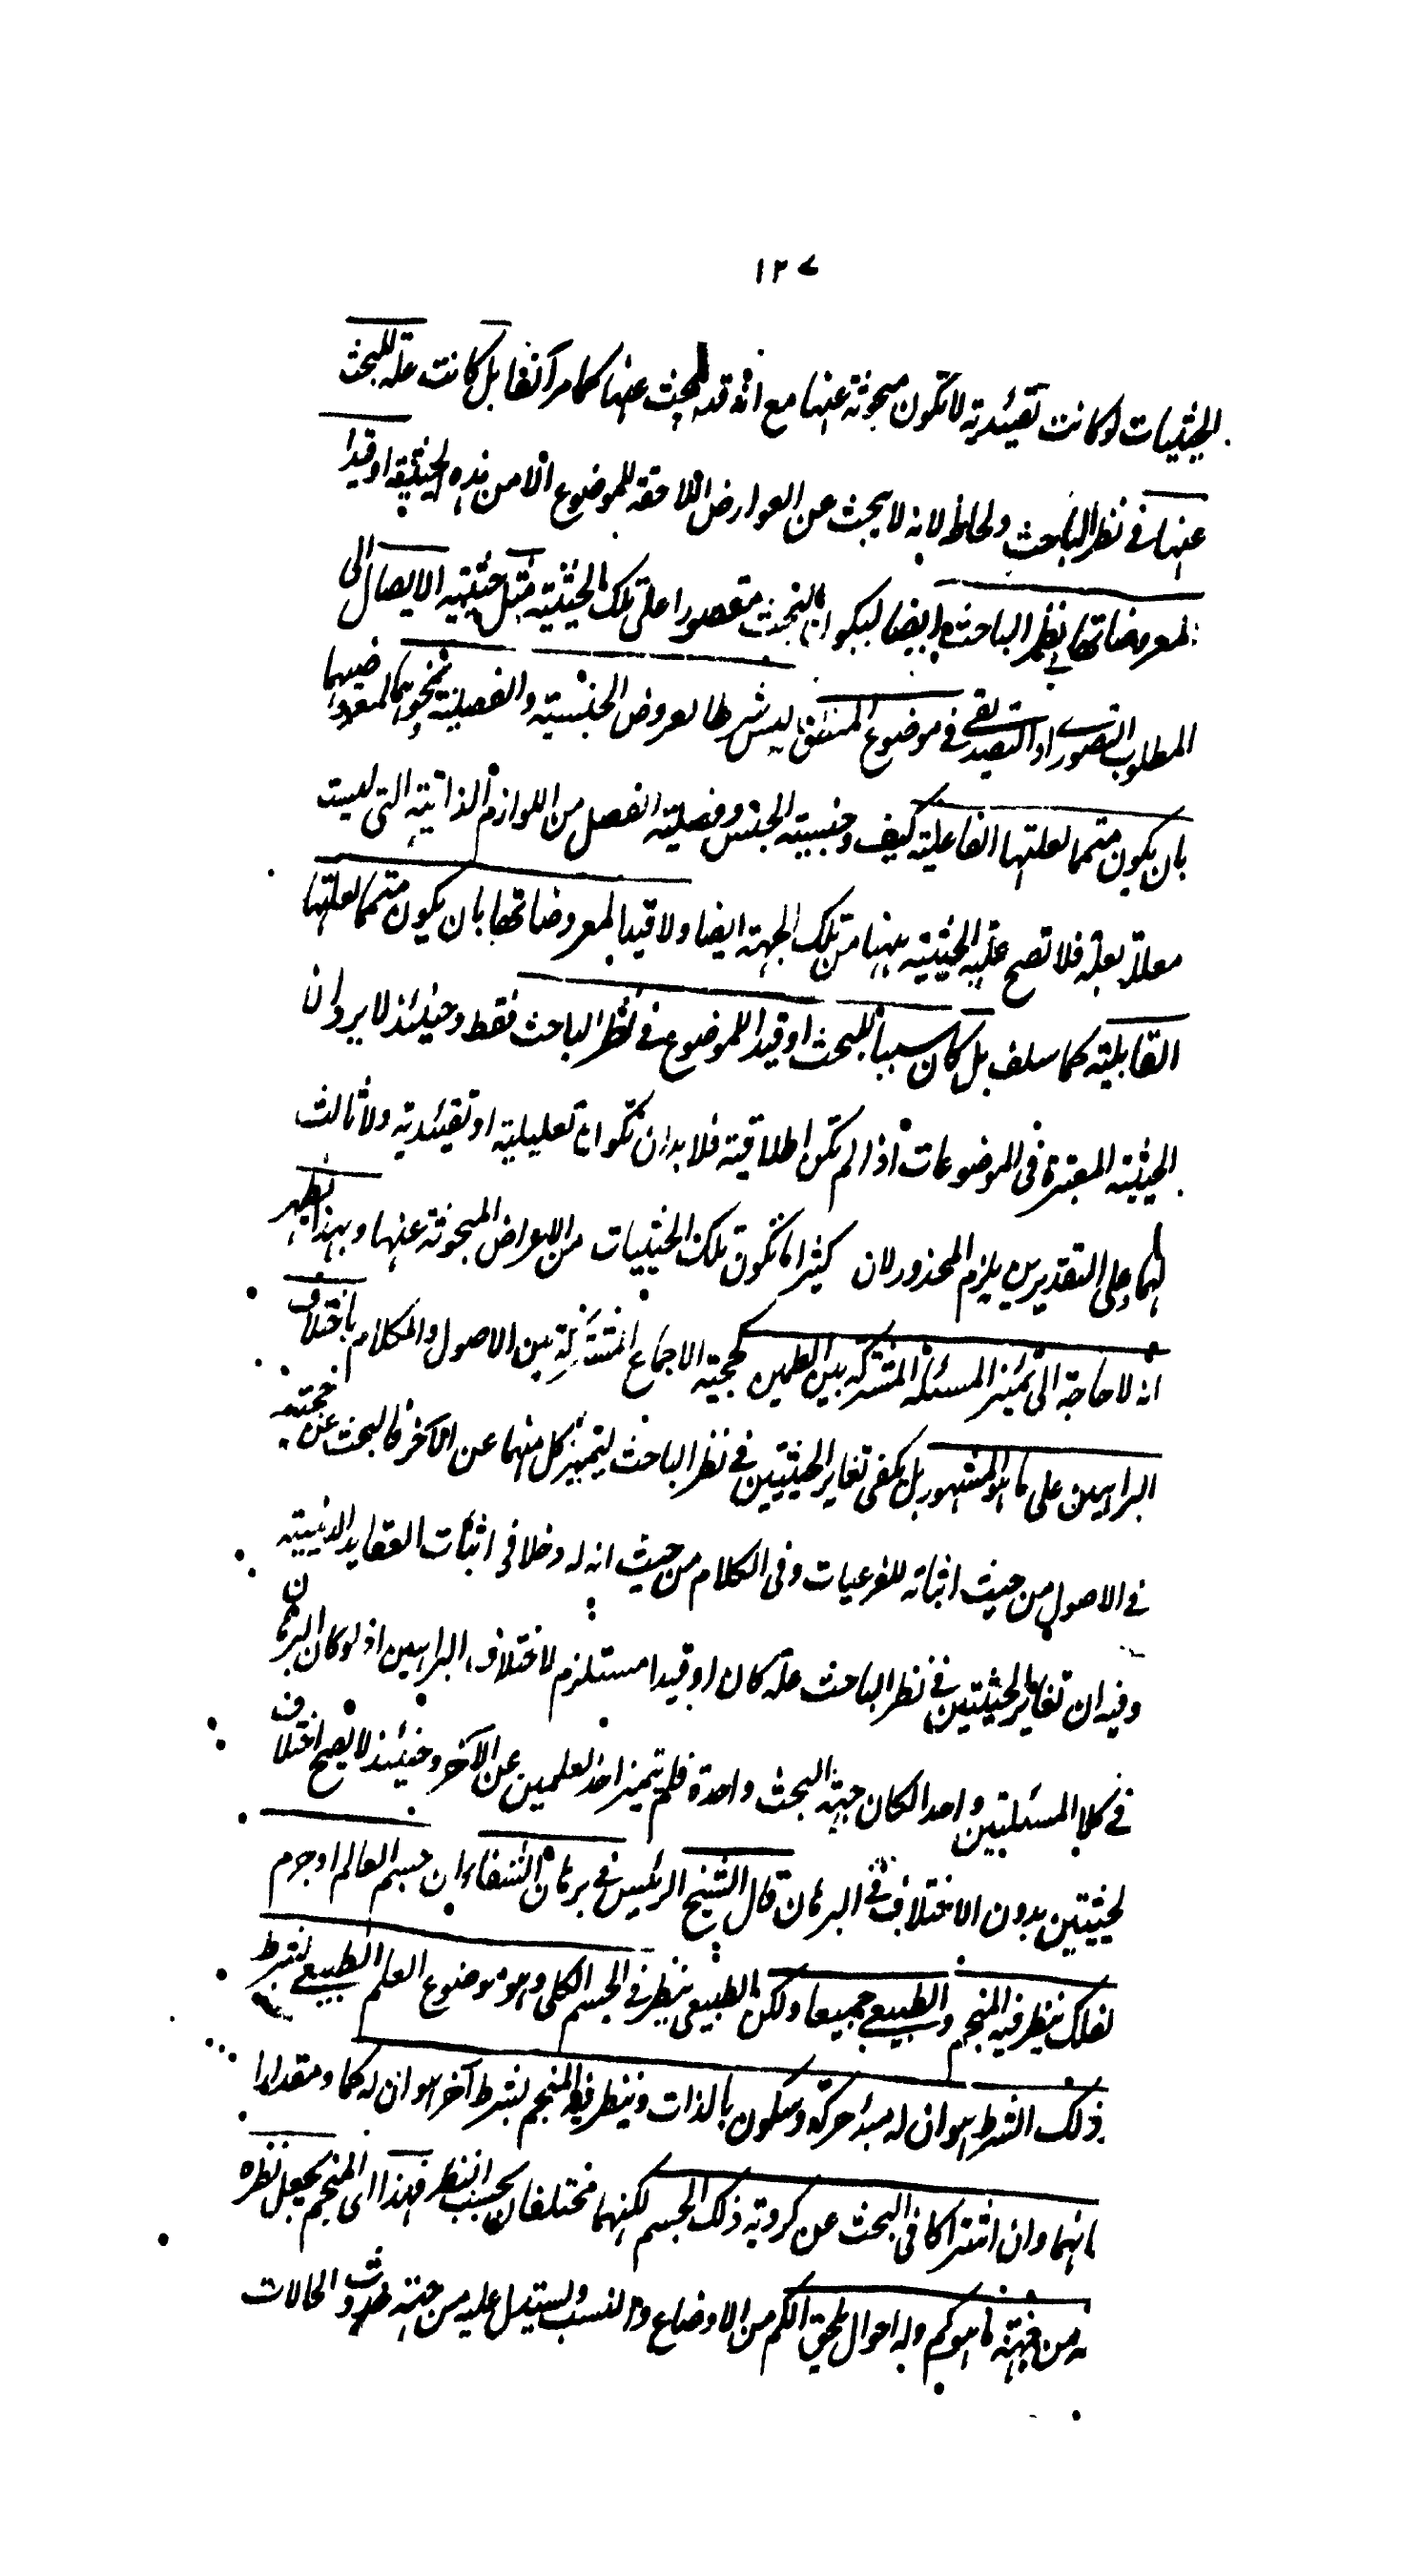 ١٢٧
الحيثيات لو كانت تقييدية لا تكون مبحوثة عنها مع انه قد يبحث عنها كما مر آنفا بل كانت علة للبحث
عنها في نظر الباحث ولحاظه لانه لا يبحث عن العوارض اللاحقة للموضوع الا من هذه الحيثية او قيدا
لمعروضاتها في نظر الباحث ايضا ليكون البحث مقصورا على تلك الحيثية مثل حيثية الايصال الى
المطلوب التصوري او التصديقي في موضوع المنطق ليس شرطا لعروض الجنسية والفصلية ونحوهما لمعروضيهما
بان يكون متمما لعلتها الفاعلية كيف وجنسية الجنس وفصلية الفصل من اللوازم الذاتية التي ليست
معللة بعلة فلا تصح علية الحيثية ههنا من تلك الجهة ايضا ولا قيدا لمعروضاتها بان يكون متمما لعلتها
القابلية كما سلف بل كان سببا للبحث او قيدا للموضوع في نظر الباحث فقط وحينئذ لا يرد ان
الحيثية المعتبرة في الموضوعات اذا لم تكن اطلاقية فلا بد ان تكون تعليلية او تقييدية ولا ثالث
لهما وعلى التقديرين يلزم المحذور لان كثيرا ما تكون تلك الحيثيات من الاعراض المبحوثة عنها وبهذا يظهر
انه لا حاجة الى تميز المسئلة المشتركة بين العلمين كحجية الاجماع المشتركة بين الاصول والكلام باختلاف
البراهين على ما هو المشهور بل يكفي تغاير الحيثيتين في نظر الباحث ليتميز كل منهما عن الآخر فالبحث عن حجيته
في الاصول من حيث اثباته للفرعيات وفي الكلام من حيث انه له دخلا في اثبات العقايد الدينية
وفيه ان تغاير الحيثيتين في نظر الباحث علة كان او قيدا مستلزم لاختلاف البراهين اذ لو كان البرهان
في كلا المسئلتين واحدا لكان جهة البحث واحدة فلم يتميز احد العلمين عن الآخر وحينئذ لا يصح اختلاف
لحيثيتين بدون الاختلاف في البرهان قال الشيخ الرئيس في برهان الشفاء ان جسم العالم او جرم
لفلك ينظر فيه المنجم والطبيعي جميعا ولكن الطبيعي ينظر في الجسم الكلي وهو موضوع العلم الطبيعي بشرط
ذلك الشرط هو ان له مبدأ حركة وسكون بالذات وينظر فيه المنجم بشرط آخر هو ان له كما ومقدارا
انهما وان اشتراكا في البحث عن كروية ذلك الجسم لكنهما مختلفان بحسب النظر فهذا اى المنجم يجعل نظره
يه من جهة ما هو كم وله احوال يلحق الكم من الاوضاع والنسب ويستدل عليه من جهة الحالات